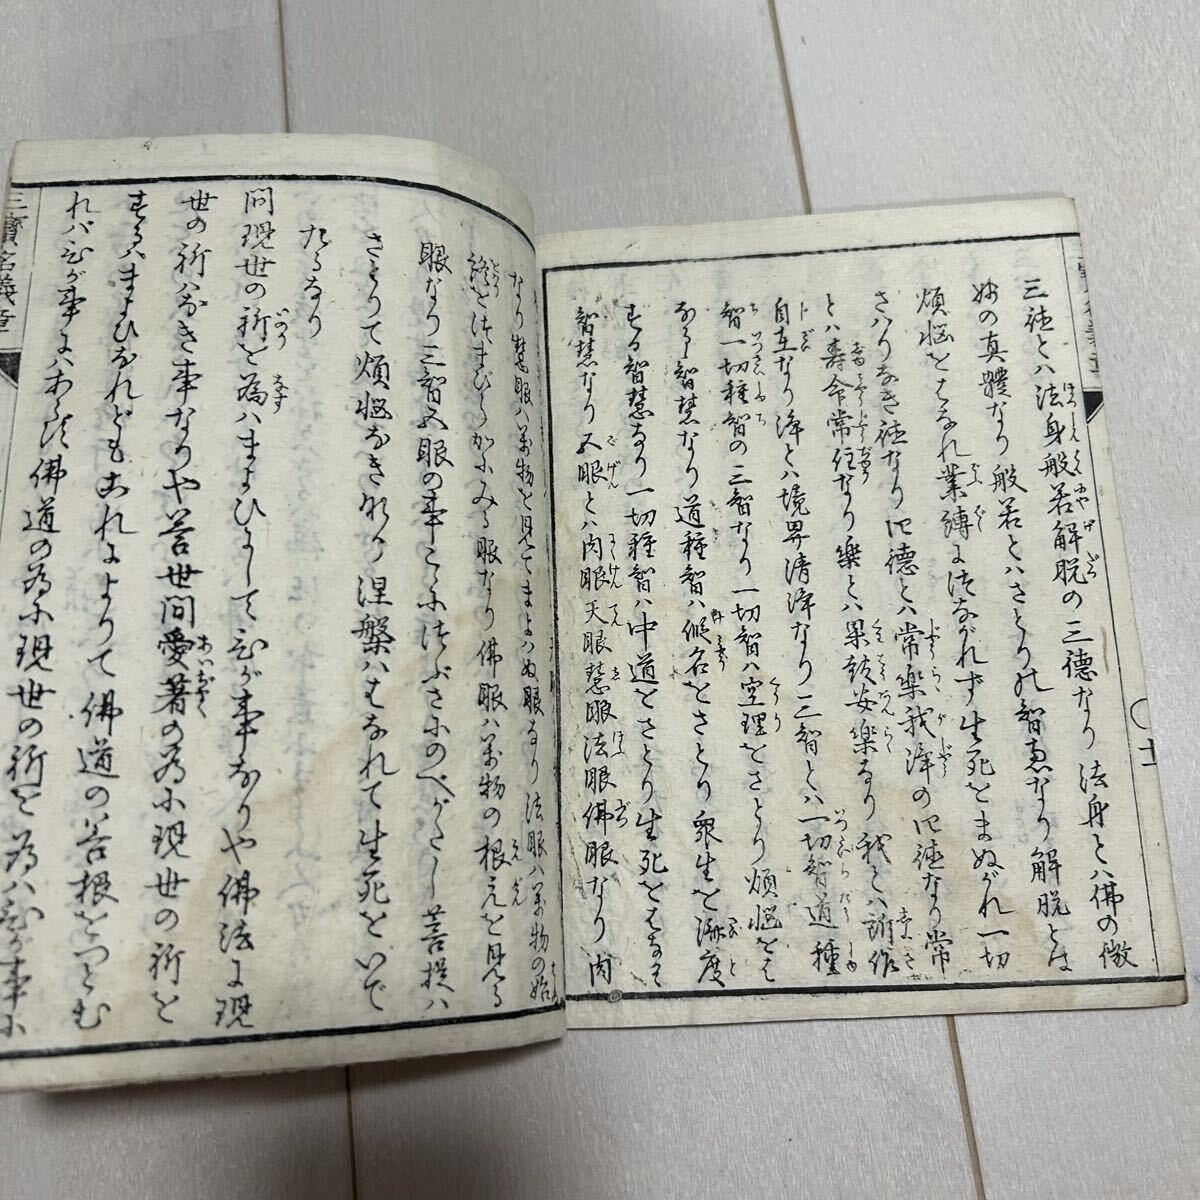 三徳とハ法身般若解脱の三徳なり 法身とハ佛の微
妙の真體なり 般若とハさとりの智恵なり 解脱とは
煩悩をはなれ業縛につながれず生死をまぬがれ一切
さハりなき徳なり 四徳とハ常樂我浄の四徳なり 常
とハ壽命常住なり 樂とハ安樂なり 我とハ
自在なり 浄とハ境界清浄なり 三智とハ一切智道種
智一切種智の三智なり 一切智ハ空理をさとり煩悩をは
なるゝ智慧なり 道種智ハ假名をさとり衆生を済度
する智慧なり 一切種智ハ中道をさとり生死をはなるゝ
智慧なり 五眼とハ肉眼天眼慧眼法眼佛眼なり 肉
なり 慧眼ハ萬物を見てまよハぬ眼なり 法眼ハ萬物の始
終をつまびらかにみる眼なり 佛眼ハ萬物の根元を見る
眼なり 三智五眼の事こゝにつぶさにのべがたし 菩提ハ
さとりて煩悩なきなり 涅槃ハはなれて生死をいで
たるなり
問現世の祈を為ハまよひにしてひが事なりや佛法に現
世の祈ハなき事なりや 答世間愛著の為に現世の祈を
するハまよひなれどもこれによりて佛道の善根をつとむ
れバひが事にハあらず 佛道の為に現世の祈を為ハひが事に
三寳名義章